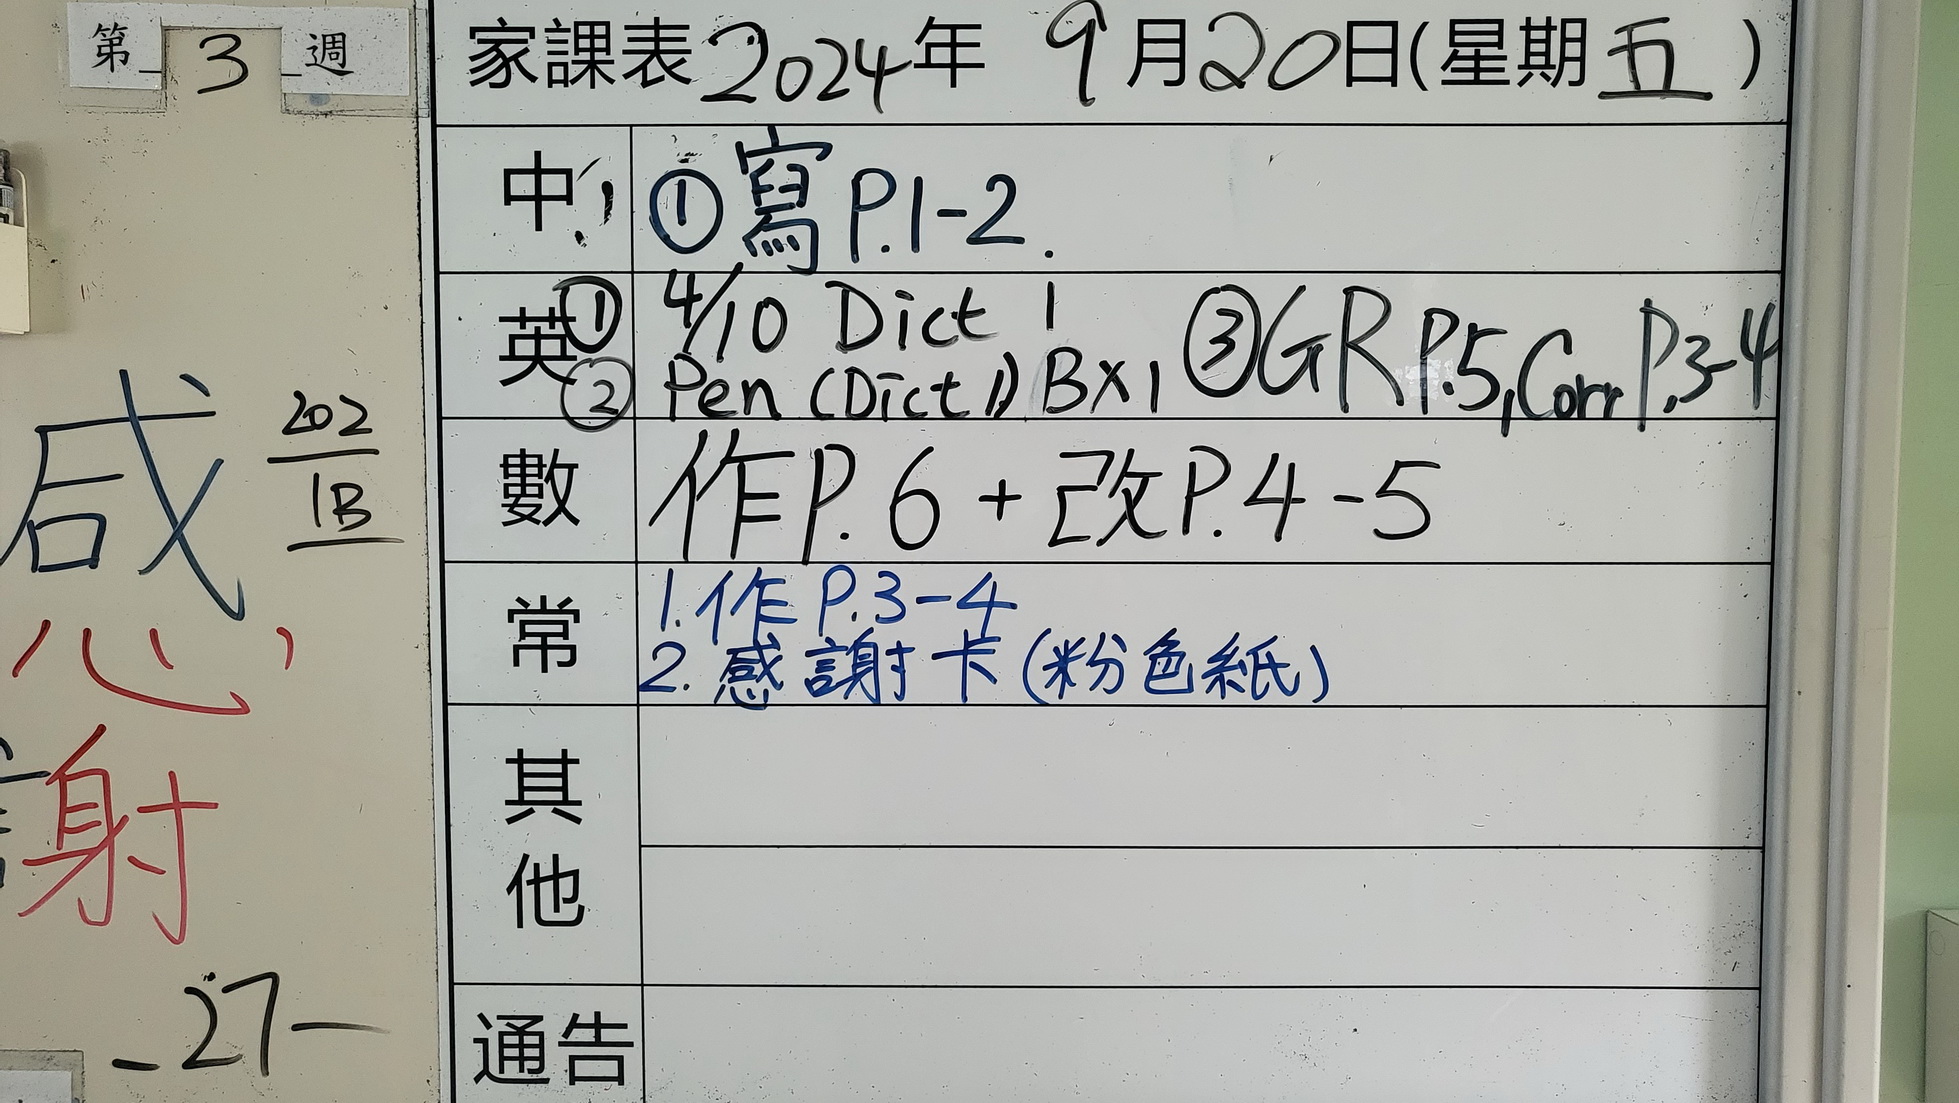 第 3 週
家課表 2024年 9月20日(星期五)
中 ①寫P.1-2.
英 ① 4/10 Dict 1
② Pen (Dict 1) B×1 ③GR P.5, Corr. P.3-4
數 作P.6 + 改P.4-5
常 1. 作 P.3-4
2. 感謝卡(粉色紙)
其他
通告
感謝
202
1B
27